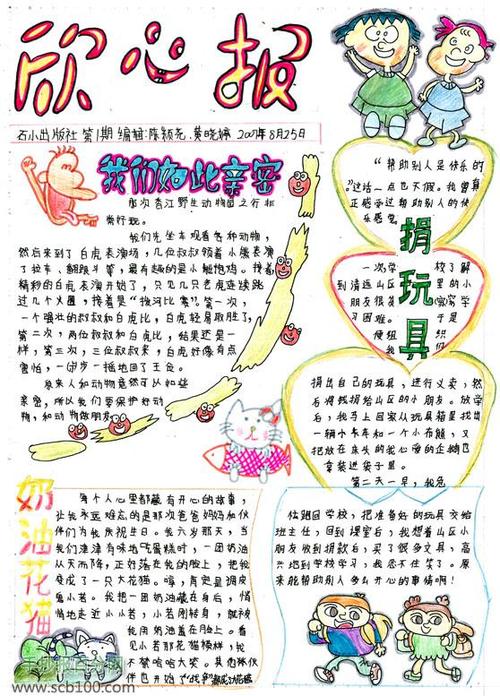 欣心报
石小出版社 第1期 编辑:陈颖尧、黄晓婷 2007年8月25日
我们如此亲密
那次香江野生动物园之行非
常开心。
我们先坐车观看各种动物,
然后来到了白虎表演场,几位叔叔领着小熊表演
了拉车、翻跟斗等,最有趣的是小艇炮鸡。接着
精彩的白虎表演开始了,只见几只老虎连续跳
过几个火圈,接着是"拔河比赛"。第一次,
一个强壮的叔叔和白虎比,白虎轻易取胜了,
第二次,两位叔叔和白虎比,结果还是一
样,第三次,三位叔叔来,白虎好像有点
害怕,一步步摇地回了王公。
原来人和动物竟然可以如此
亲密,所以我们要保护好动
物,和动物做朋友。
捐玩具
"帮助别人是快乐的
"这话一点也不假。我曾真
正感受过帮助别人的快
乐感觉。
一次,学校了解
到清远山区里的小
朋友很苦,学
习困难。于是
便组织
我们
捐出自己的玩具,进行义卖,然
后将钱捐给山区的小朋友。放学
后,我马上回家从玩具箱里找出
一辆小卡车和一个小布熊,又
把放在床头的我心爱的企鹅也
拿装进袋子里。
第二天一早,我急
忙跑回学校,把准备好的玩具交给
班主任,回到课室后,我想着山区小
朋友收到捐款后,买了很多文具,高
兴地到学校学习,我忍不住笑了。原
来能帮助别人多么开心的事情啊!
奶油花猫
每个人心里都藏有开心的故事,
让我永远难忘的是那次爸爸妈妈和伙
伴们为我庆祝生日。我六岁那天,当
我们津津有味地吃蛋糕时,一团奶油
从天而降,正好落在我的脸上,把我
变成了一只大花猫。哼,肯定是调皮
鬼小若。我把一团奶油藏在身后,悄
悄地走近小小若,小若刚转身,就被
我用奶油盖在脸上。看
见小若那花猫模样,我
不禁哈哈大笑。其他伙伴
www.scb100.com